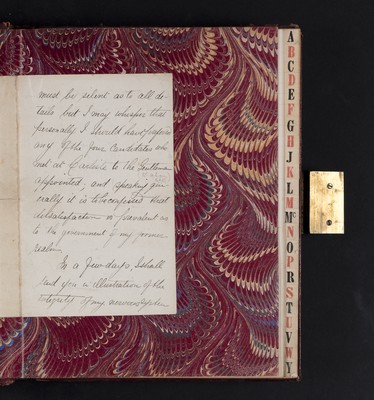 must be silent as to all de-
tails but I may whisper that
personally I should have preferred
any of the four Candidates who
out at Carlisle to the Gentleman
appointed, and speaking gen-
erally it is to be confessed that
dissatisfaction is prevalent as
to the government of my
realm
In a few days, I shall
send you in illustration of the
integrity of my
A
B
C
D
E
F
G
H
J
K
L
M
Mc
N
O
P
R
S
T
U
V
W
Y